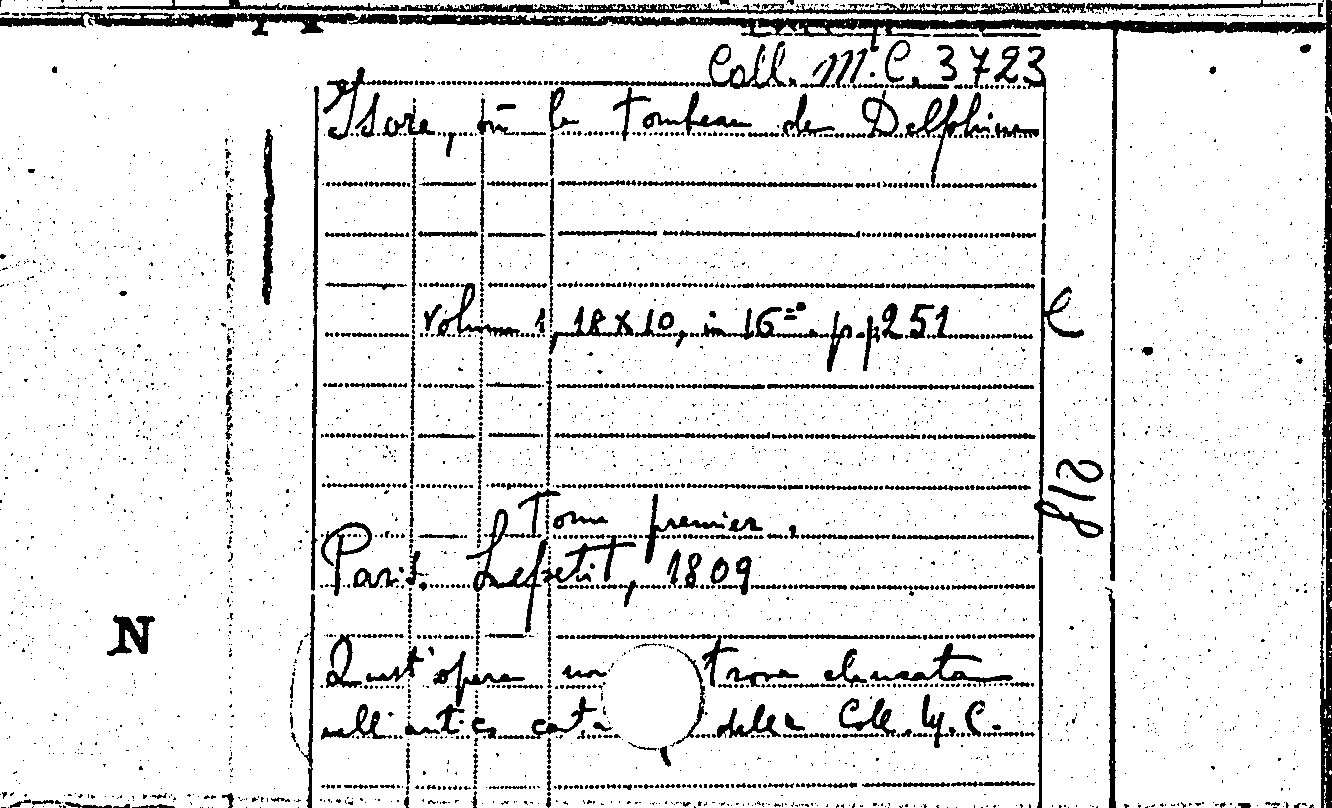 Coll. M.C. 3723
Isore, ou le Tombeau de Delphine
Volume 1, 18 x 10, in 16º. p.p. 251
218
Tome premier.
Paris. Lepetit, 1809
N
Quest'opera trova elencata
nell'antico della Coll. M. C.